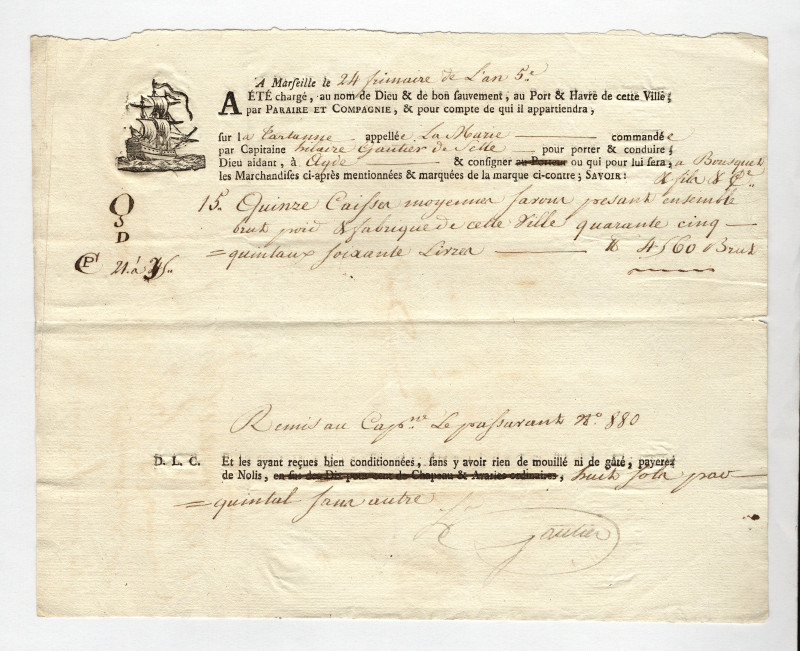 A Marseille le 24 frimaire de L'an 5.e
A ÉTÉ chargé, au nom de Dieu & de bon sauvement, au Port & Havre de cette Ville,
par PARAIRE ET COMPAGNIE, & pour compte de qui il appartiendra,
sur la Tartanne appellée La Marie commandée
par Capitaine hilaire Gautier de Sille pour porter & conduire,
Dieu aidant, à Agde & consigner au Porteur ou qui pour lui sera, a Bousquet
& fils & C.ie
les Marchandises ci-après mentionnées & marquées de la marque ci-contre; SAVOIR:
15. Quinze Caisses moyennes savon pesant ensemble
brut poid & fabrique de cette Ville quarante cinq
quintaux soixante Livres ℔ 4560 Brut
Q
S
D
CP 21. à 35.
Remis au Cap.ne Le passavant N.o 880
D. L. C. Et les ayant reçues bien conditionnées, sans y avoir rien de mouillé ni de gâté, payerez
de Nolis, en sus des Dix pour cent de Chapeau & Avaries ordinaires, huit sols par
quintal sans autre
Gautier